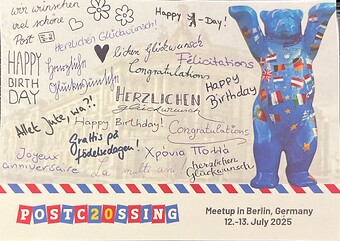 Wir wünschen
viel schöne
Post
Happy -Day!
Herzlichen Glückwunsch!
HAPPY
BIRTH
DAY
Herzlichen
Glückwunsch
lichen Glückwunsch
Félicitations
Congratulations
HERZLICHEN
Glückwunsch
Happy
Birthday
Allet Jute, wa?!
Happy Birthday!
Congratulations
Grattis på
födelsedagen!
Χρόνια Πολλά
Joyeux
anniversaire
La mulți ani
herzlichen
Glückwunsch
POSTC20SSING
Meetup in Berlin, Germany
12.-13. July 2025